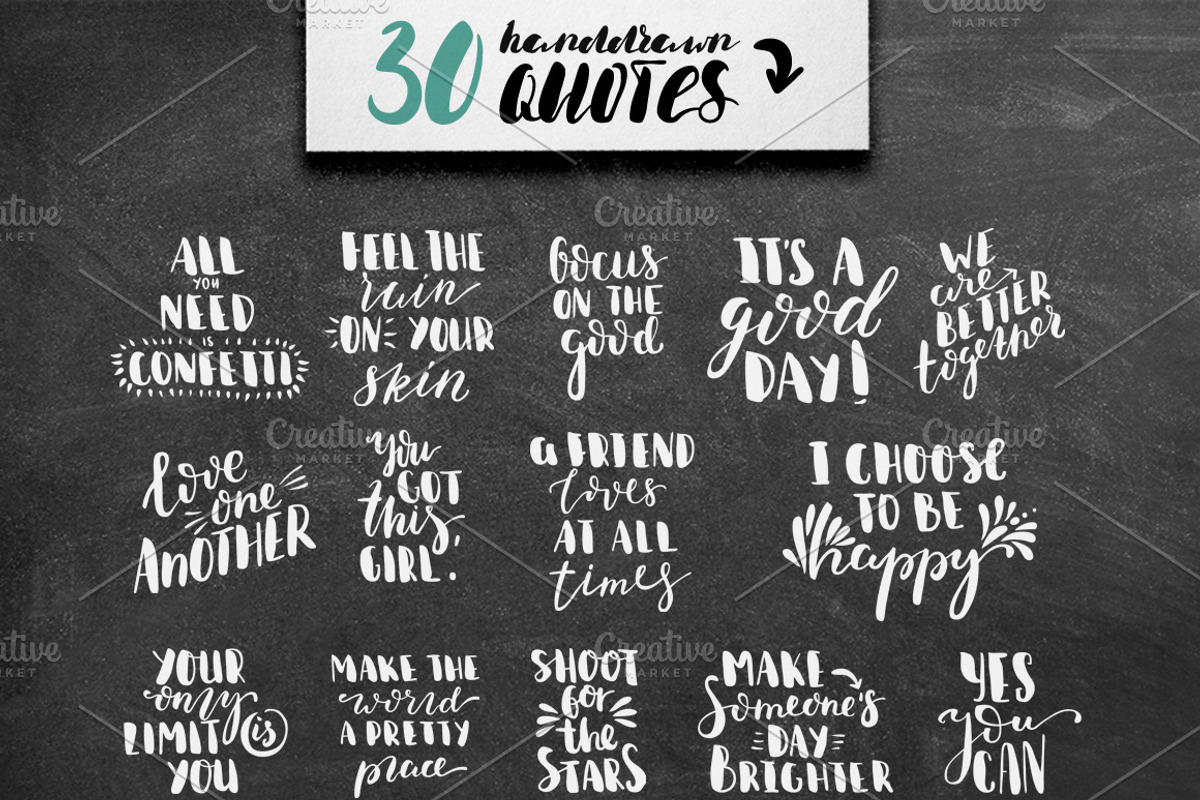 30 handdrawn
QUOTES
ALL
YOU
NEED
IS
CONFETTI
FEEL THE
rain
ON YOUR
skin
focus
ON THE
good
IT'S A
good
DAY!
WE
are
BETTER
together
love
one
ANOTHER
You
GOT
this,
GIRL.
a FRIEND
loves
AT ALL
times
I CHOOSE
TO BE
happy
YOUR
only
LIMIT is
YOU
MAKE THE
world
A PRETTY
place
SHOOT
for
the
STARS
MAKE
Someone's
DAY
BRIGHTER
YES
you
CAN
Creative
MARKET